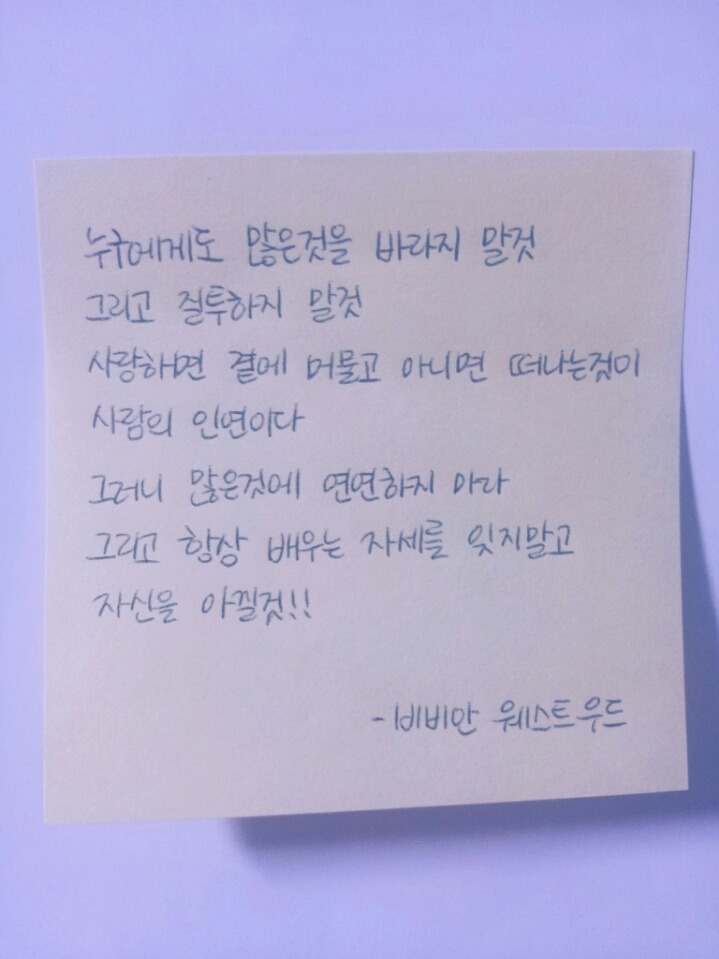 누구에게도 많은것을 바라지 말것
그리고 질투하지 말것
사랑하면 곁에 머물고 아니면 떠나는것이
사람의 인연이다
그러니 많은것에 연연하지 마라
그리고 항상 배우는 자세를 잊지말고
자신을 아낄것!!
-비비안 웨스트우드